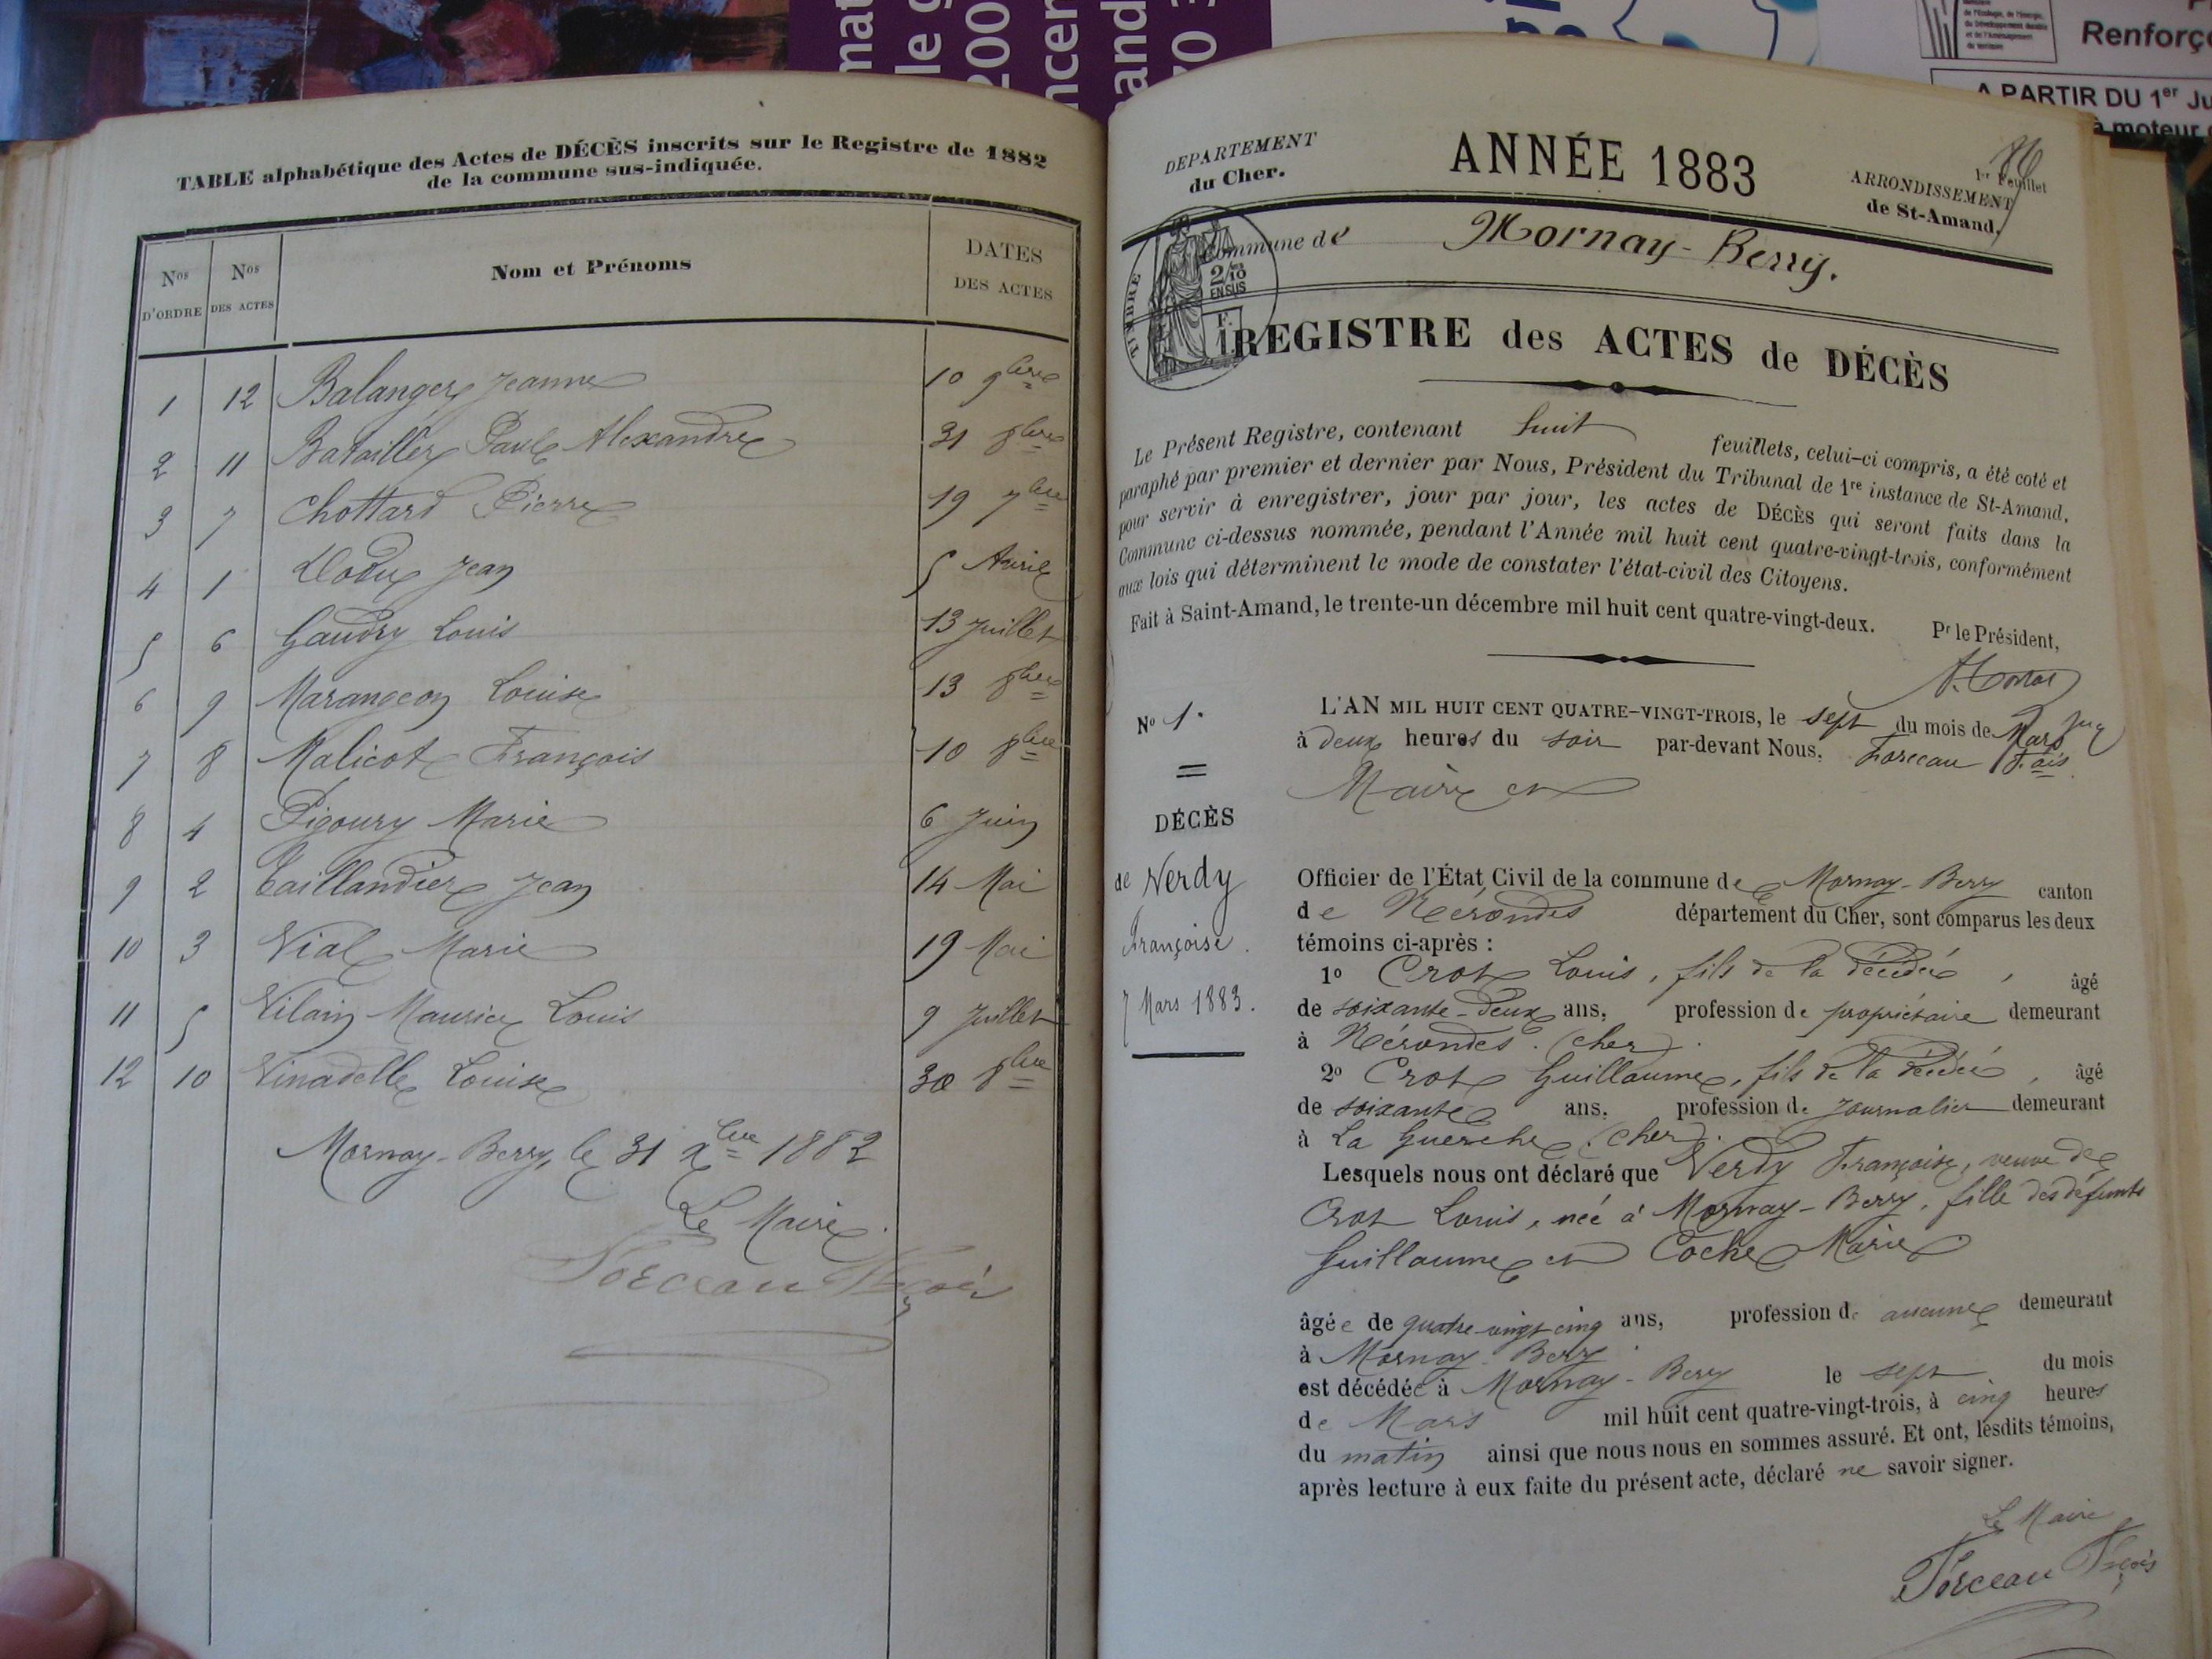 TABLE alphabétique des Actes de DÉCÈS inscrits sur le Registre de 1882
de la commune sus-indiquée.
Nos D'ORDRE Nos DES ACTES Nom et Prénoms DATES DES ACTES
1 12 Balanger Jeanne 10 9bre
2 11 Batailler Paul Alexandre 31 8bre
3 7 Chottard Pierre 19 7bre
4 1 Dodu Jean 5 Avril
5 6 Gaudry Louis 13 Juillet
6 9 Marangeon Louise 13 8bre
7 8 Malicot François 10 8bre
8 4 Pigoury Marie 6 Juin
9 2 Taillandier Jean 14 Mai
10 3 Vial Marie 19 Mai
11 5 Vilain Maurice Louis 9 Juillet
12 10 Vinadelle Louise 30 8bre
Mornay-Berry, le 31 Xbre 1882
Le Maire
Forceau Fçois
DEPARTEMENT
du Cher.
ANNÉE 1883
86
1er Feuillet
ARRONDISSEMENT
de St-Amand,
Commune de Mornay-Berry.
TIMBRE
2/10
EN SUS
REGISTRE des ACTES de DÉCÈS
Le Présent Registre, contenant huit feuillets, celui-ci compris, a été coté et
paraphé par premier et dernier par Nous, Président du Tribunal de 1re instance de St-Amand,
pour servir à enregistrer, jour par jour, les actes de DÉCÈS qui seront faits dans la
Commune ci-dessus nommée, pendant l'Année mil huit cent quatre-vingt-trois, conformément
aux lois qui déterminent le mode de constater l'état-civil des Citoyens.
Fait à Saint-Amand, le trente-un décembre mil huit cent quatre-vingt-deux.
Pr le Président,
No 1.
DÉCÈS
de Verdy
Françoise.
7 Mars 1883.
L'AN MIL HUIT CENT QUATRE-VINGT-TROIS, le sept du mois de Mars
à deux heures du soir par-devant Nous, Forceau F.ois
Maire et
Officier de l'État Civil de la commune de Mornay-Berry canton
de Nérondes département du Cher, sont comparus les deux
témoins ci-après :
1o Crot Louis, fils de la décédée, âgé
de soixante-deux ans, profession de propriétaire demeurant
à Nérondes (Cher).
2o Crot Guillaume, fils de la décédée, âgé
de soixante ans, profession de journalier demeurant
à La Guerche (Cher).
Lesquels nous ont déclaré que Verdy Françoise, veuve de
Crot Louis, née à Mornay-Berry, fille des défunts
Guillaume et Coche Marie
âgée de quatre-vingt-cinq ans, profession de aucune demeurant
à Mornay-Berry
est décédée à Mornay-Berry le sept du mois
de Mars mil huit cent quatre-vingt-trois, à cinq heures
du matin ainsi que nous nous en sommes assuré. Et ont, lesdits témoins,
après lecture à eux faite du présent acte, déclaré ne savoir signer.
Le Maire
Forceau Fçois
Renforç
A PARTIR DU 1er Ju
à moteur